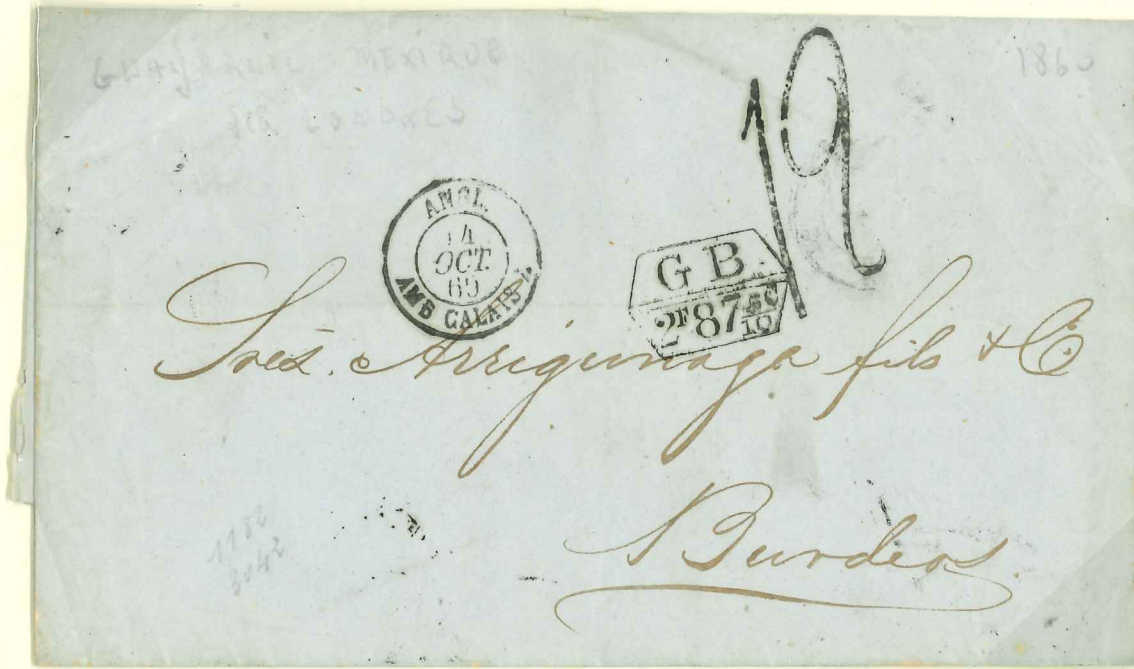 GUAYAQUIL MEXIQUE
1860
LONDRES
12
ANGL.
14
OCT.
60
AMB CALAIS
G B
2F87 56/10
Sres. Arrigunaga fils & Cº
Burdeos
1182
3042